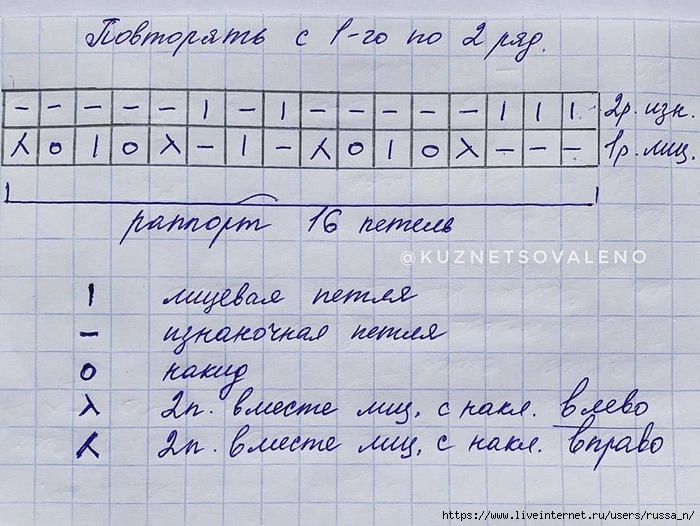 Повторять с 1-го по 2 ряд.
– – – – – | – | – – – – – | | | 2р. изн.
⅄ o | o λ – | – ⅄ o | o λ – – – 1р. лиц.
раппорт 16 петель
@KUZNETSOVALENO
| лицевая петля
– изнаночная петля
o накид
λ 2п. вместе лиц. с накл. влево
⅄ 2п. вместе лиц. с накл. вправо
https://www.liveinternet.ru/users/russa_n/